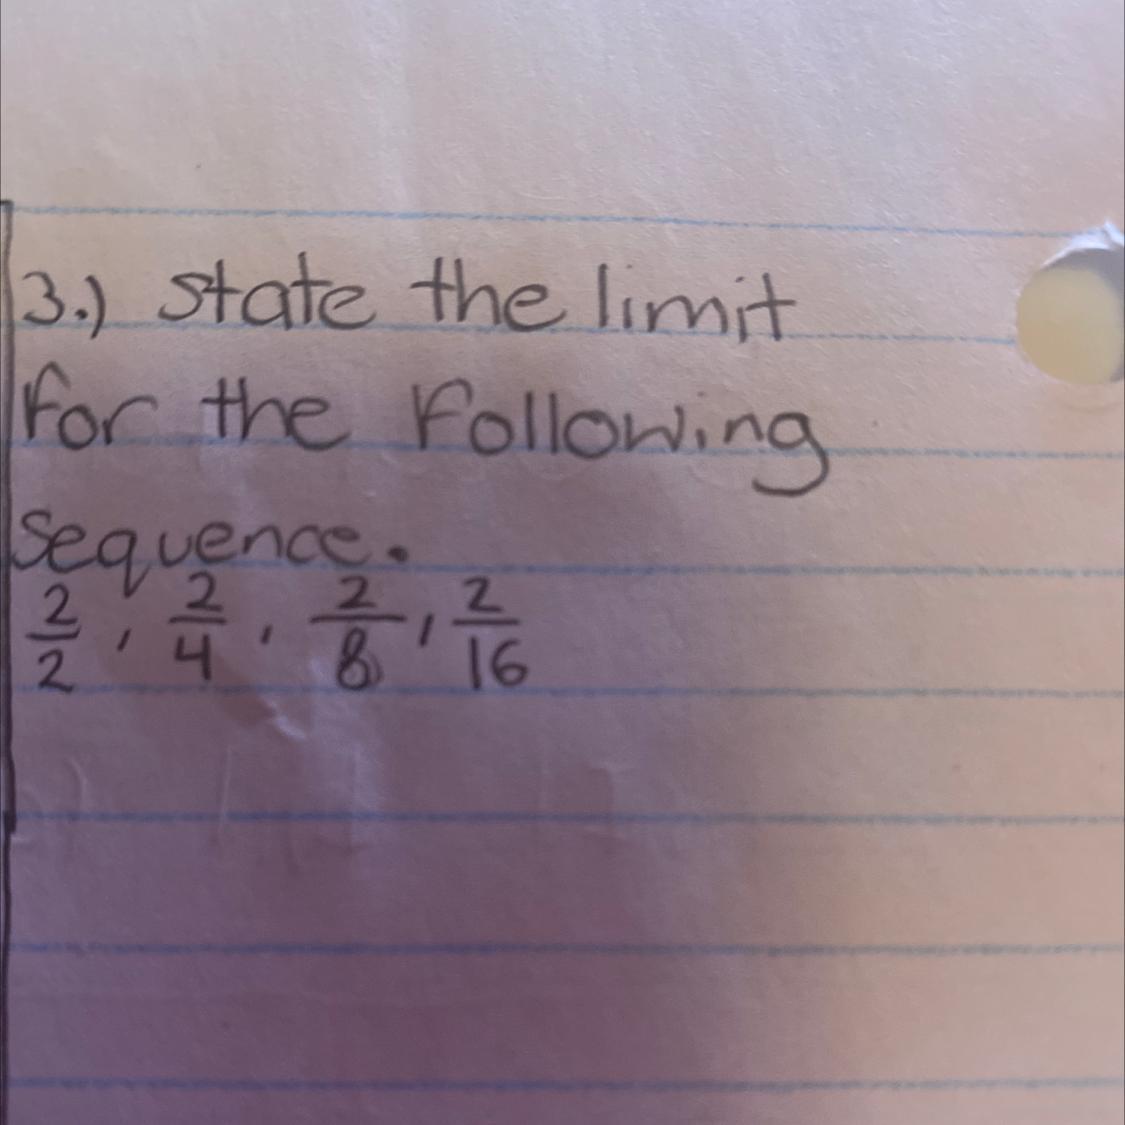 3.) state the limit
for the following
sequence.
2/2, 2/4, 2/8, 2/16